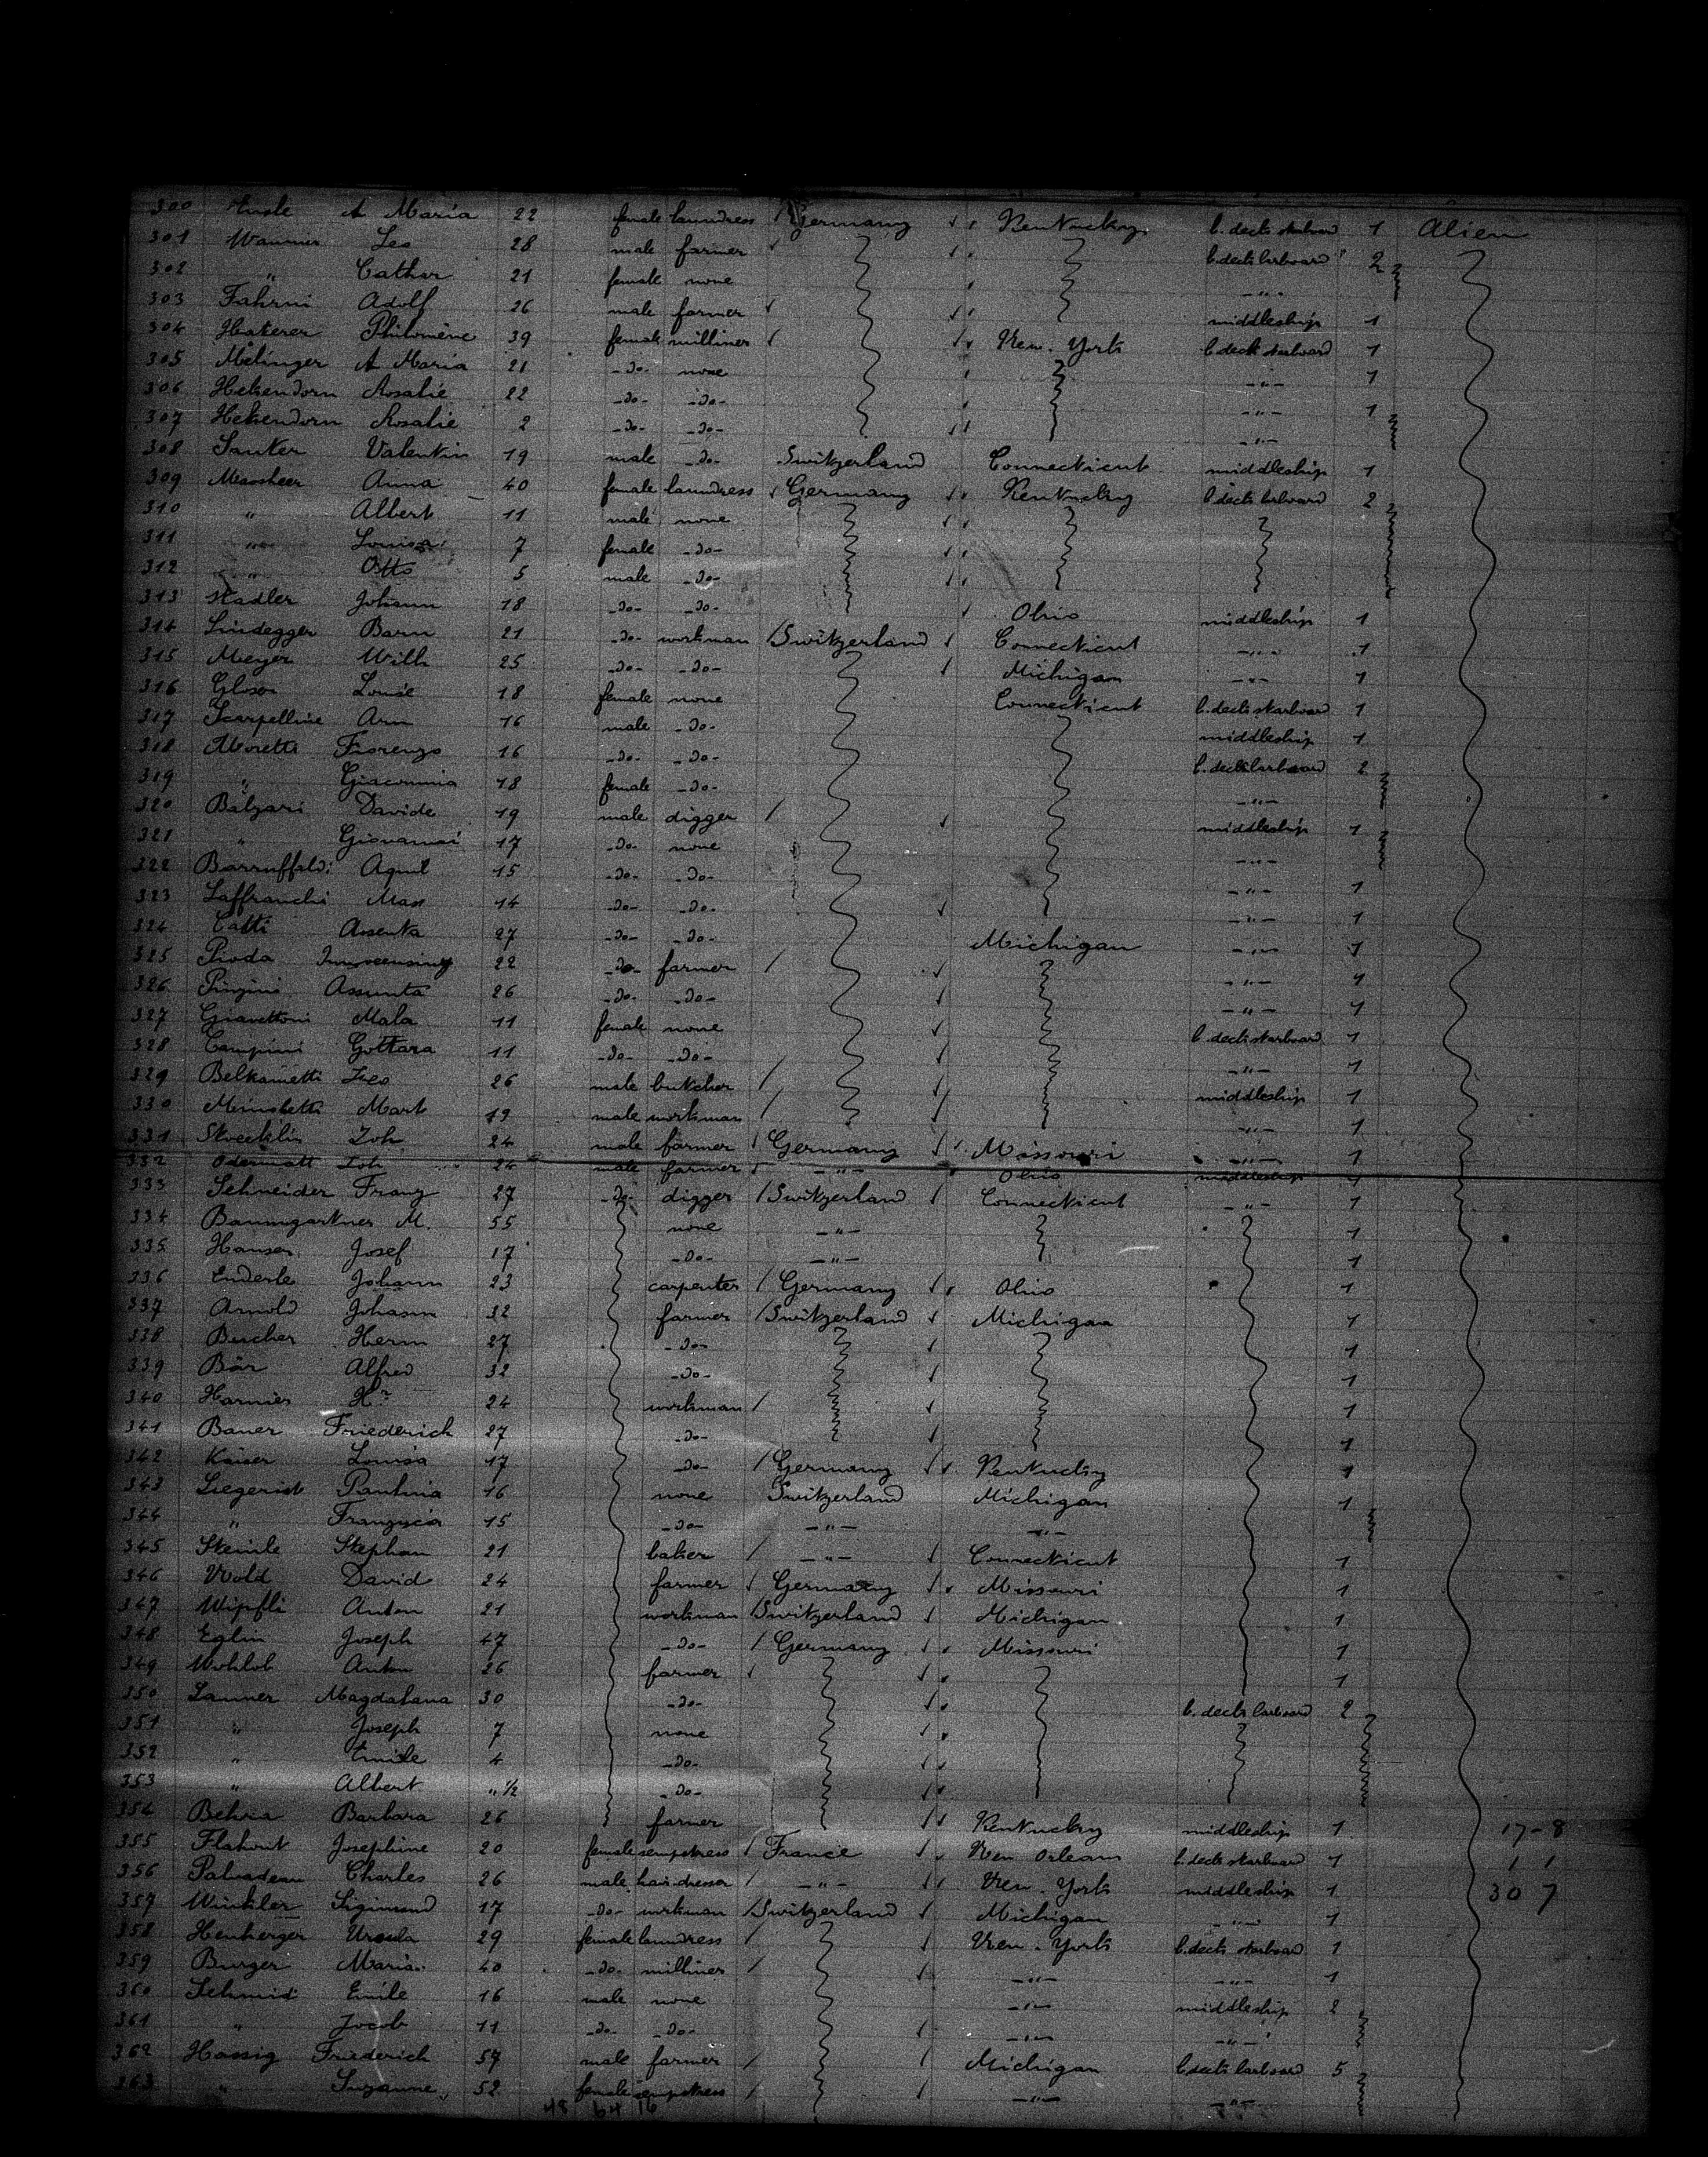 300 A Maria 22 female laundress Germany Kentucky b. deck starboard 1 Alien
301 Wanner Leo 28 male farmer b. deck larboard 2
302 " Cathar 21 female none -"-
303 Fahrni Adolf 26 male farmer middleship 1
304 Haterer Philomène 39 female milliner New-York b. deck starboard 1
305 Melinger A Maria 21 -do- none -"- 1
306 Hekendorn Rosalie 22 -do- -do- -"- 1
307 Hekendorn Rosalie 2 -do- -do- -"-
308 Santer Valentin 19 male -do- Switzerland Connecticut middleship 1
309 Anna 40 female laundress Germany Kentucky b. deck larboard 2
310 " Albert 11 male none
311 " Louisa 7 female -do-
312 " Otto 5 male -do-
313 Stadler Johann 18 -do- -do- Ohio middleship 1
314 Lindegger Barn 21 -do- workman Switzerland Connecticut -"- 1
315 Meyer Wilh 25 -do- -do- Michigan -"- 1
316 Gloson Louise 18 female none Connecticut b. deck starboard 1
317 Scarpelline Arn 16 male -do- middleship 1
318 Moretti Fiorenzo 16 -do- -do- b. deck larboard 2
319 " Giacomina 18 female -do- -"-
320 Balzari Davide 19 male digger middleship 1
321 " Giovanni 17 -do- none -"-
322 Barruffaldi Aquil 15 -do- -do- -"- 1
323 Laffranchi Mass 14 -do- -do- -"- 1
324 Catti Assenta 27 -do- -do- Michigan -"- 1
325 Pioda 22 -do- farmer -"- 1
326 Assunta 26 -do- -do- -"- 1
327 Giavettoni Mala 11 female none b. deck starboard 1
328 Campini Gottara 11 -do- -do- -"- 1
329 Leo 26 male butcher middleship 1
330 Mart 19 male workman -"- 1
331 Stoecklin Joh 24 male farmer Germany Missouri -"- 1
332 Odermatt Joh 24 male farmer -"- Ohio middleship 1
333 Schneider Franz 27 -do- digger Switzerland Connecticut -"- 1
334 Baumgartner M. 55 none -"- 1
335 Hauser Josef 17 -do- -"- 1
336 Enderle Johann 23 carpenter Germany Ohio 1
337 Arnold Johann 32 farmer Switzerland Michigan 1
338 Bucher Herm 27 -do- 1
339 Bär Alfred 32 -do- 1
340 Harnier 24 workman 1
341 Bauer Friederich 27 -do- 1
342 Kaiser Louisa 17 -do- Germany Kentucky 1
343 Siegerist Paulina 16 none Switzerland Michigan 1
344 " Franzisca 15 -do- -"- -"-
345 Steinle Stephan 21 baker -"- Connecticut 1
346 Wold David 24 farmer Germany Missouri 1
347 Wipfli Anton 21 workman Switzerland Michigan 1
348 Eglin Joseph 47 -do- Germany Missouri 1
349 Wohlob Anton 26 farmer 1
350 Lanner Magdalana 30 -do- b. deck larboard 2
351 " Joseph 7 none
352 " Emile 4 -do-
353 " Albert " 1/2 -do-
354 Behra Barbara 26 farmer Kentucky middleship 1 17-8
355 Flahout Josephine 20 female sempstress France New Orleans b. deck starboard 1 1 1
356 Palvadeau Charles 26 male hair-dresser -"- New-York middleship 1 30 7
357 Winkler Sigimund 17 -do- workman Switzerland Michigan -"- 1
358 Henherger Ursula 29 female laundress New-York b. deck starboard 1
359 Burger Maria 40 -do- milliner -"- -"- 1
360 Schmid Emile 16 male none -"- middleship 2
361 " Jacob 11 -do- -do- -"- -"-
362 Hassig Friederich 57 male farmer Michigan b. deck larboard 5
363 " Suzanne 52 female sempstress -"- -"-
48 64 16